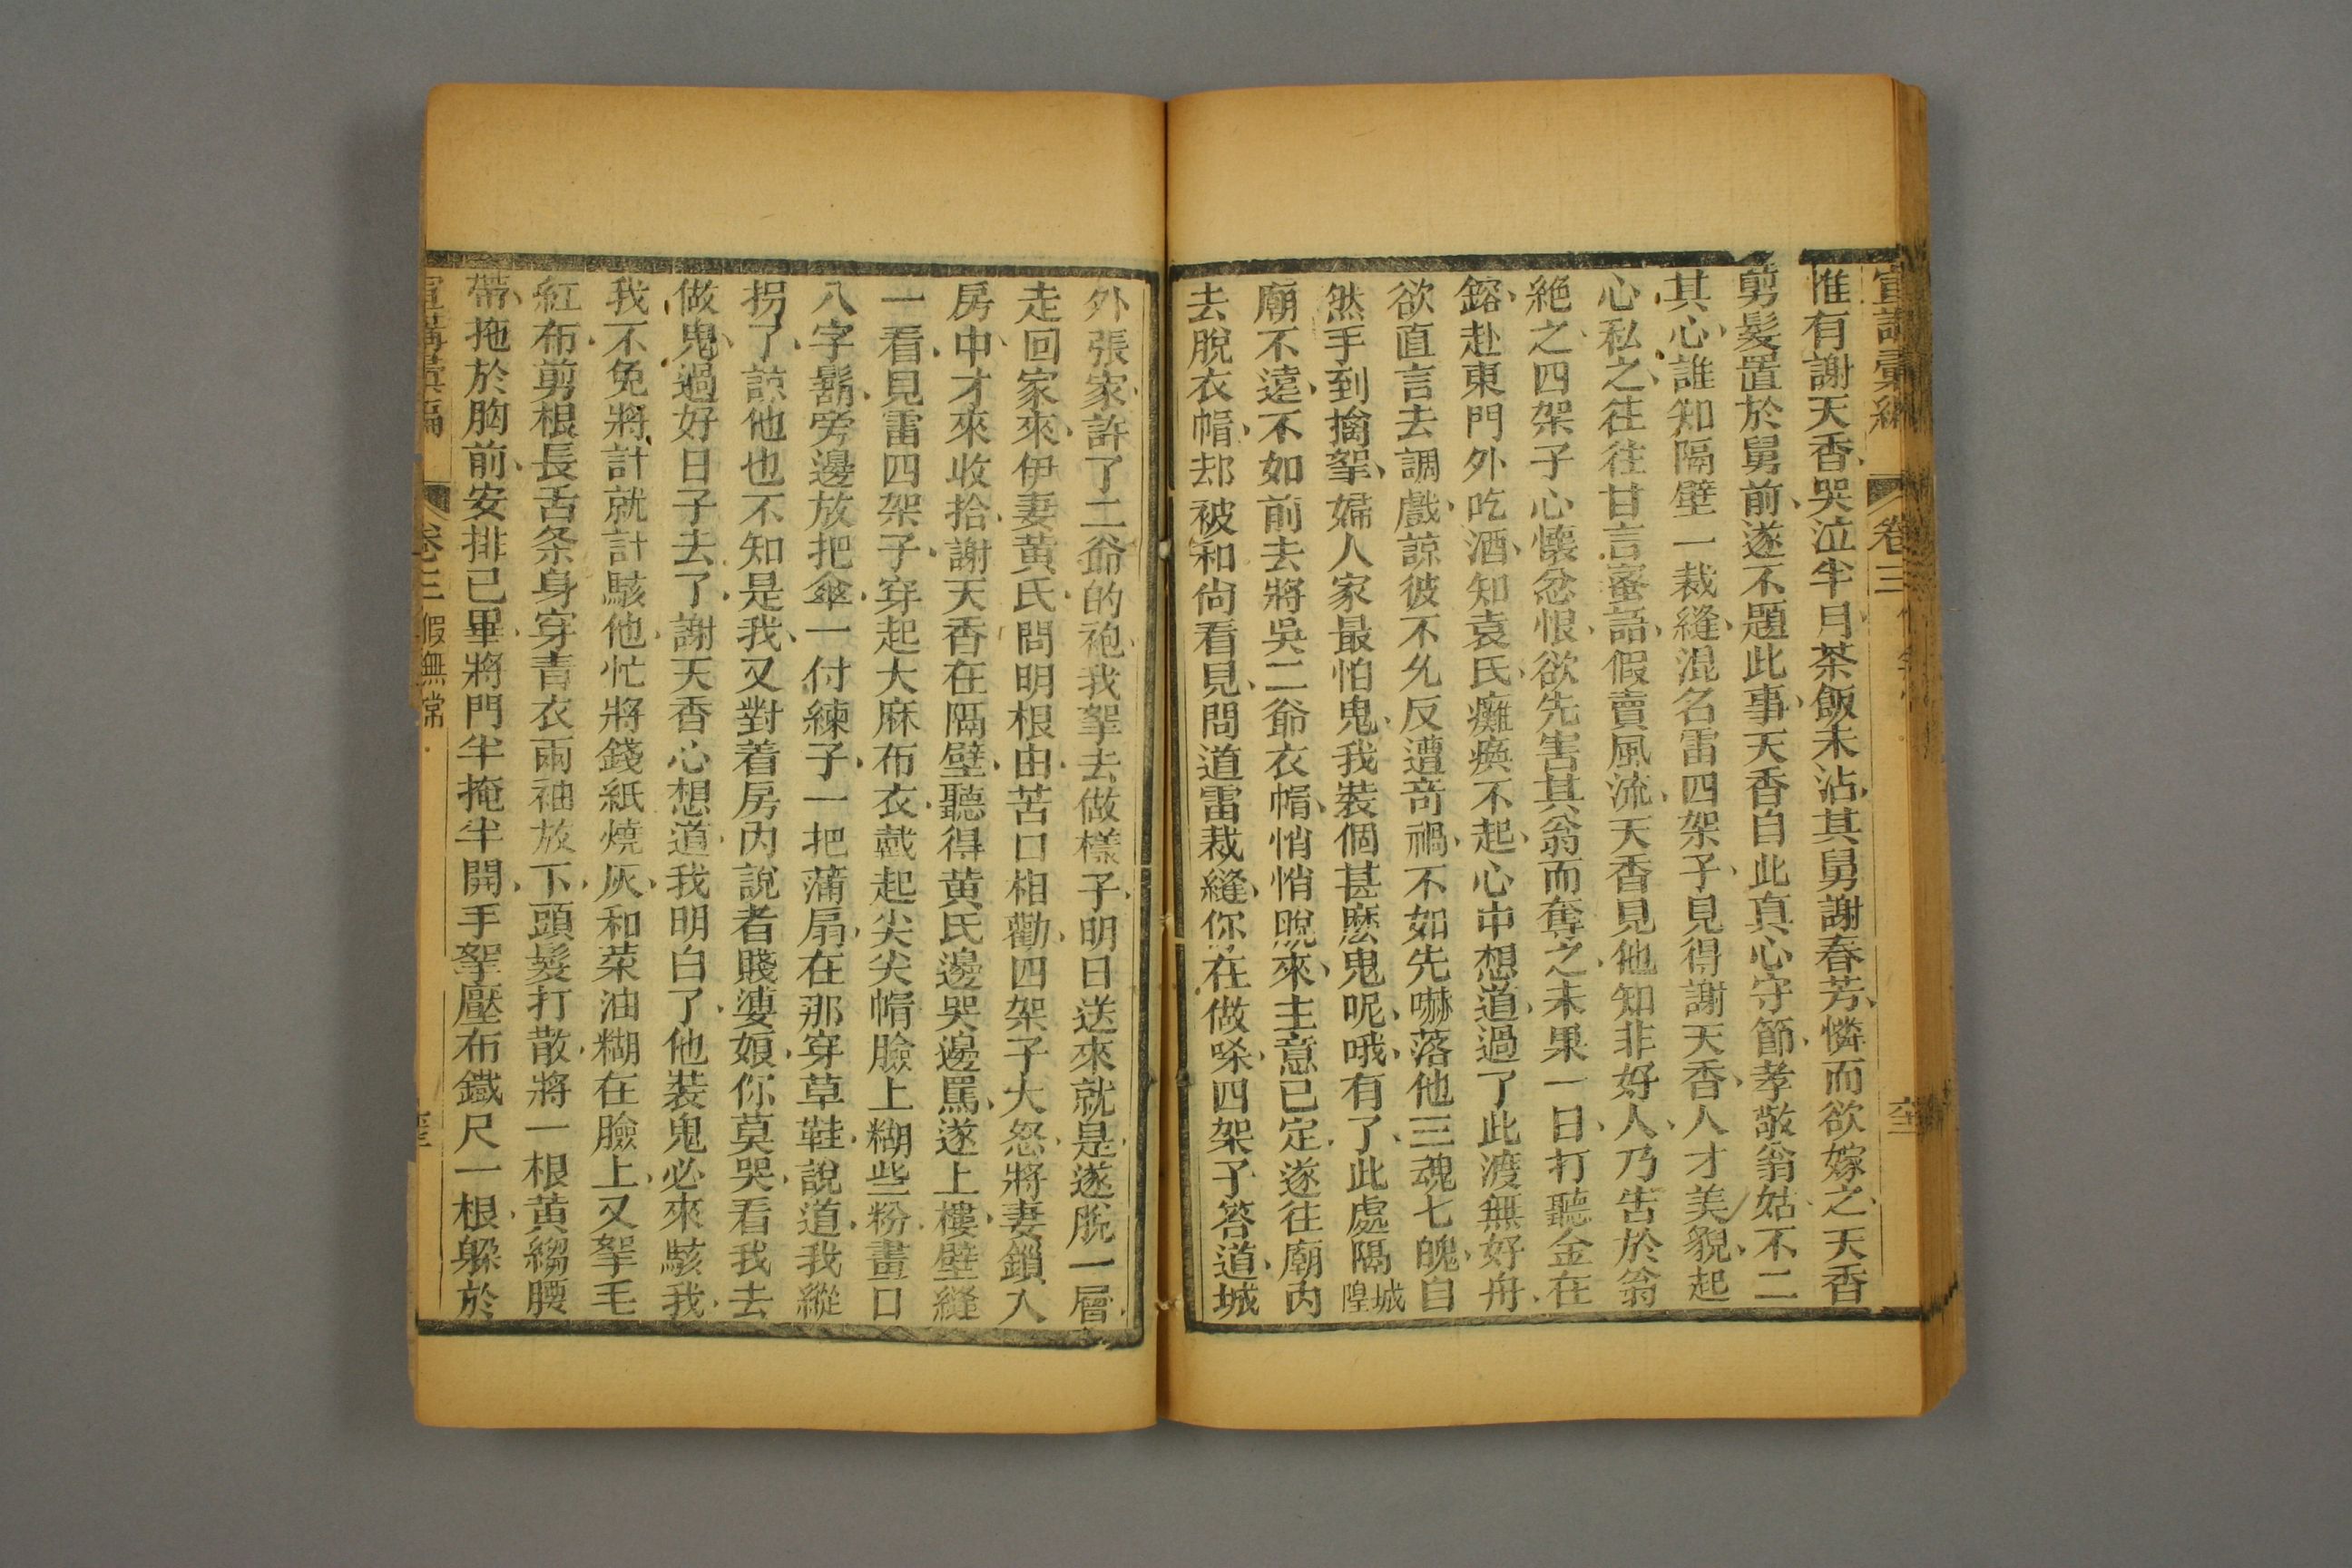 宣講彙編 卷三
惟有謝天香哭泣半月茶飯未沾其舅謝春芳憐而欲嫁之天香
剪髮置於舅前遂不題此事天香自此真心守節孝敬翁姑不二
其心誰知隔壁一裁縫混名雷四架子見得謝天香人才美貌起
心私之往往甘言蜜語假賣風流天香見他知非好人乃告於翁
絶之四架子心懷忿恨欲先害其翁而奪之未果一日打聽金在
鎔赴東門外吃酒知袁氏癱瘓不起心中想道過了此渡無好舟
欲直言去調戲諒彼不允反遭奇禍不如先嚇落他三魂七魄自
然手到擒拏婦人家最怕鬼我裝個甚麽鬼呢哦有了此處隔城隍
廟不遠不如前去將吳二爺衣帽悄悄脫來主意已定遂往廟內
去脫衣帽却被和尙看見問道雷裁縫你在做㗎四架子答道城
外張家許了二爺的袍我拏去做樣子明日送來就是遂脫一層
走回家來伊妻黃氏問明根由苦口相勸四架子大怒將妻鎖入
房中才來收拾謝天香在隔壁聽得黃氏邊哭邊罵遂上樓壁縫
一看見雷四架子穿起大麻布衣戴起尖尖帽臉上糊些粉畫口
八字鬍旁邊放把傘一付練子一把蒲扇在那穿草鞋說道我縱
拐了諒他也不知是我又對着房內說者賤婆娘你莫哭看我去
做鬼過好日子去了謝天香心想道我明白了他裝鬼必來駭我
我不免將計就計駭他忙將錢紙燒灰和菜油糊在臉上又拏毛
紅布剪根長舌条身穿青衣兩袖放下頭髮打散將一根黃縐腰
帶拖於胸前安排已畢將門半掩半開手拏壓布鐵尺一根躲於
宣講彙編 卷三 假無常